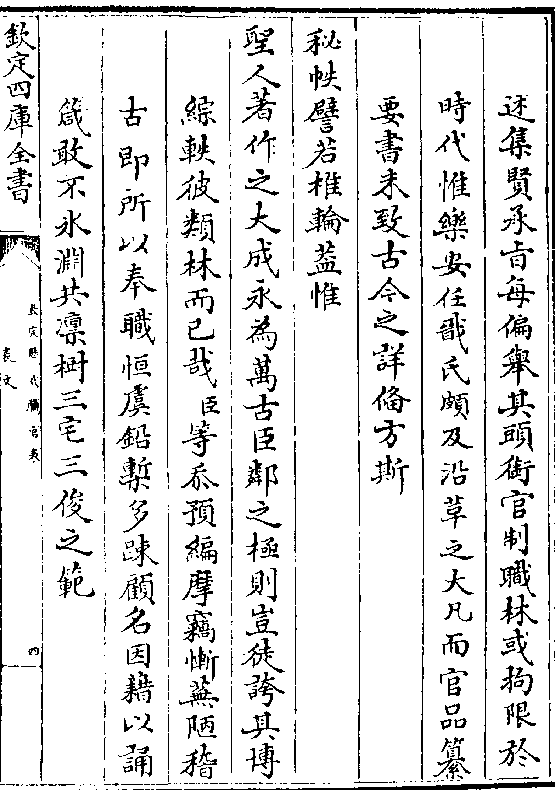 述集賢承旨每偏舉其頭銜官制職林或拘限於
時代惟樂安任戩氏頗及沿革之大凡而官品纂
要書未致古今之詳備方斯
秘帙譬若椎輪葢惟
聖人著作之大成永為萬古臣鄰之極則豈徒誇其博
綜軼彼類林而已哉臣等忝預編摩竊慚蕪陋稽
古即所以奉職恒虞鉛槧多踈顧名因藉以誦
箴敢不氷淵共凛樹三宅三俊之範
欽定四庫全書
欽定歷代職官表
表文
四